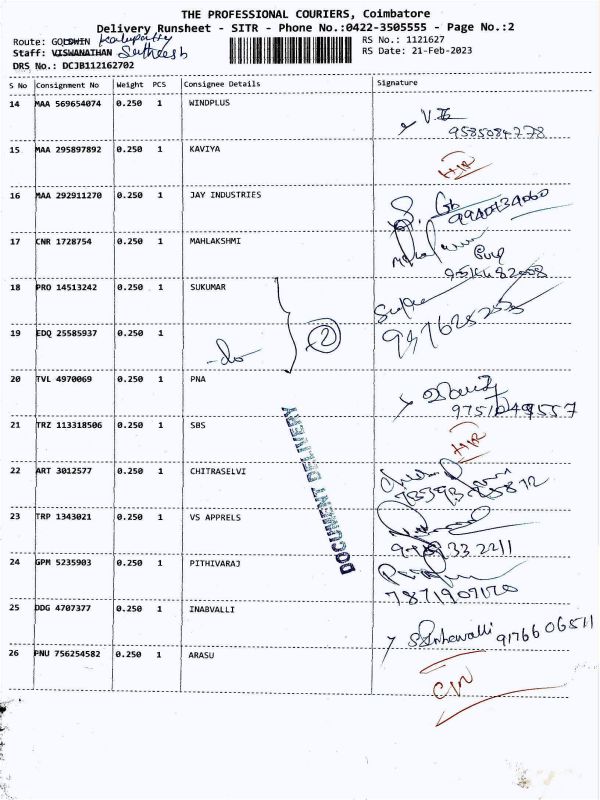 THE PROFESSIONAL COURIERS, Coimbatore
Delivery Runsheet - SITR - Phone No.:0422-3505555 - Page No.:2
Route: GOLDWIN Kalapatty
RS No.: 1121627
Staff: VISWANATHAN Satheesh
RS Date: 21-Feb-2023
DRS No.: DCJB112162702
S No Consignment No Weight PCS Consignee Details Signature
14 MAA 569654074 0.250 1 WINDPLUS
9585084278
15 MAA 295897892 0.250 1 KAVIYA
16 MAA 292911270 0.250 1 JAY INDUSTRIES
17 CNR 1728754 0.250 1 MAHLAKSHMI
18 PRO 14513242 0.250 1 SUKUMAR
19 EDQ 25585937 0.250 1 -do- 2
20 TVL 4970069 0.250 1 PNA
21 TRZ 113318506 0.250 1 SBS
22 ART 3012577 0.250 1 CHITRASELVI
23 TRP 1343021 0.250 1 VS APPRELS
24 GPM 5235903 0.250 1 PITHIVARAJ
7871909170
25 DDG 4707377 0.250 1 INABVALLI
9176606511
26 PNU 756254582 0.250 1 ARASU
DOCUMENT DELIVERY